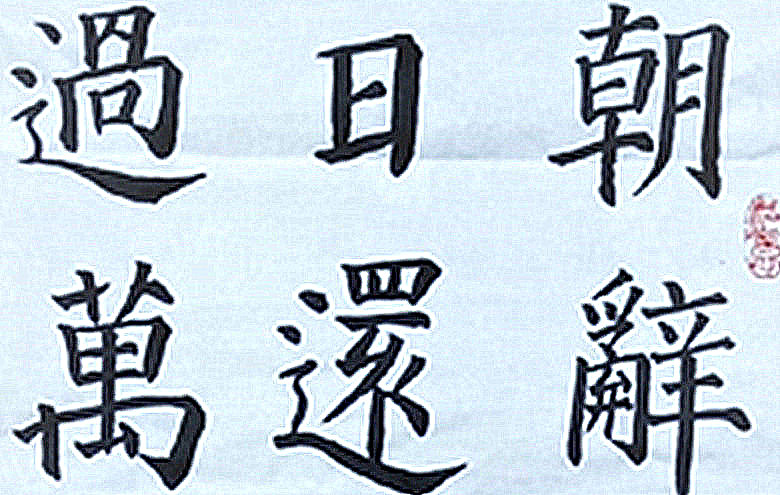 朝辭
日還
過萬